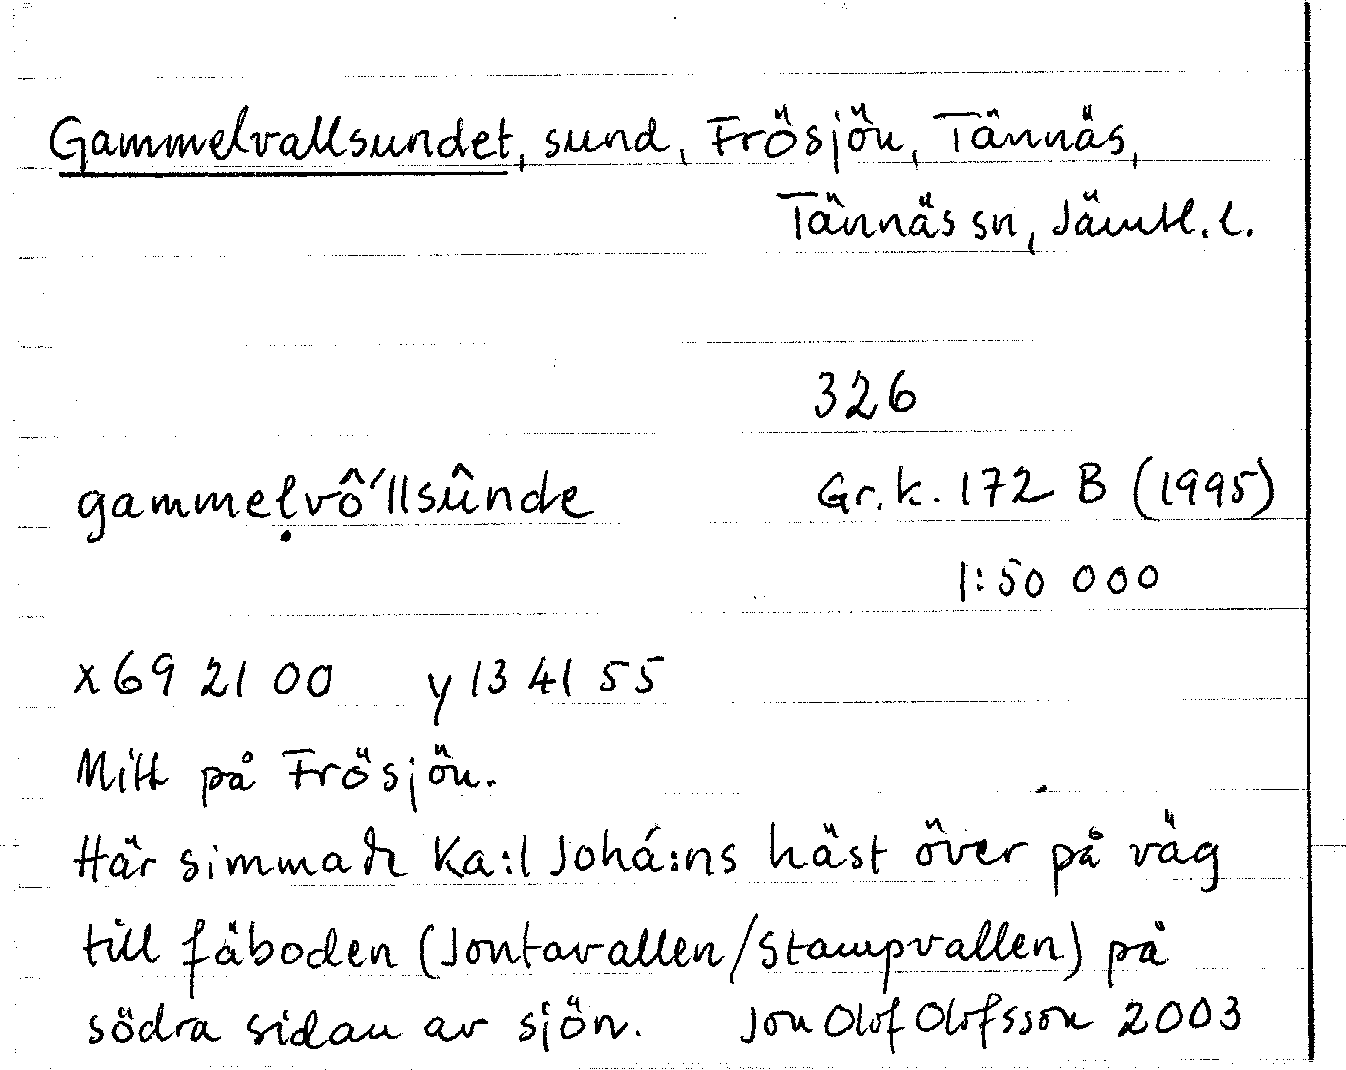 Gammelvallsundet, sund, Frösjön, Tännäs,
Tännäs sn, Jämtl. l.
326
gammeḷvô´llsûnde Gr. k. 172 B (1995)
1:50 000
x 69 21 00 y 13 41 55
Mitt på Frösjön.
Här simmade Ka:l Johá:ns häst över på väg
till fäboden (Jontavallen/Stampvallen) på
södra sidan av sjön. Jon Olof Olofsson 2003